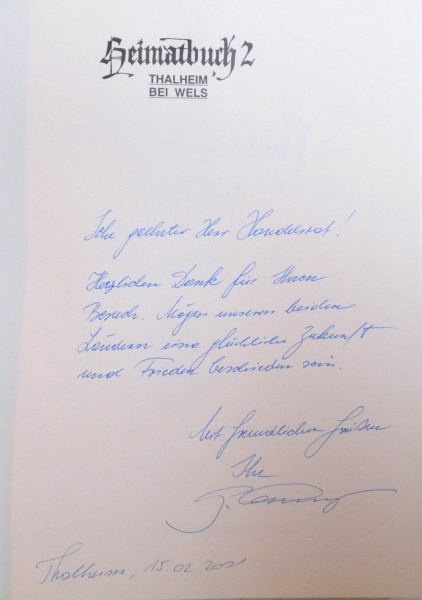 Heimatbuch 2
THALHEIM
BEI WELS
Sehr geehrter Herr Handelsrat!
Herzlichen Dank für Ihren
Besuch. Mögen unseren beiden
Ländern eine glückliche Zukunft
und Frieden beschieden sein.
Mit freundlichen Grüßen
Ihr
Thalheim, 15.02.